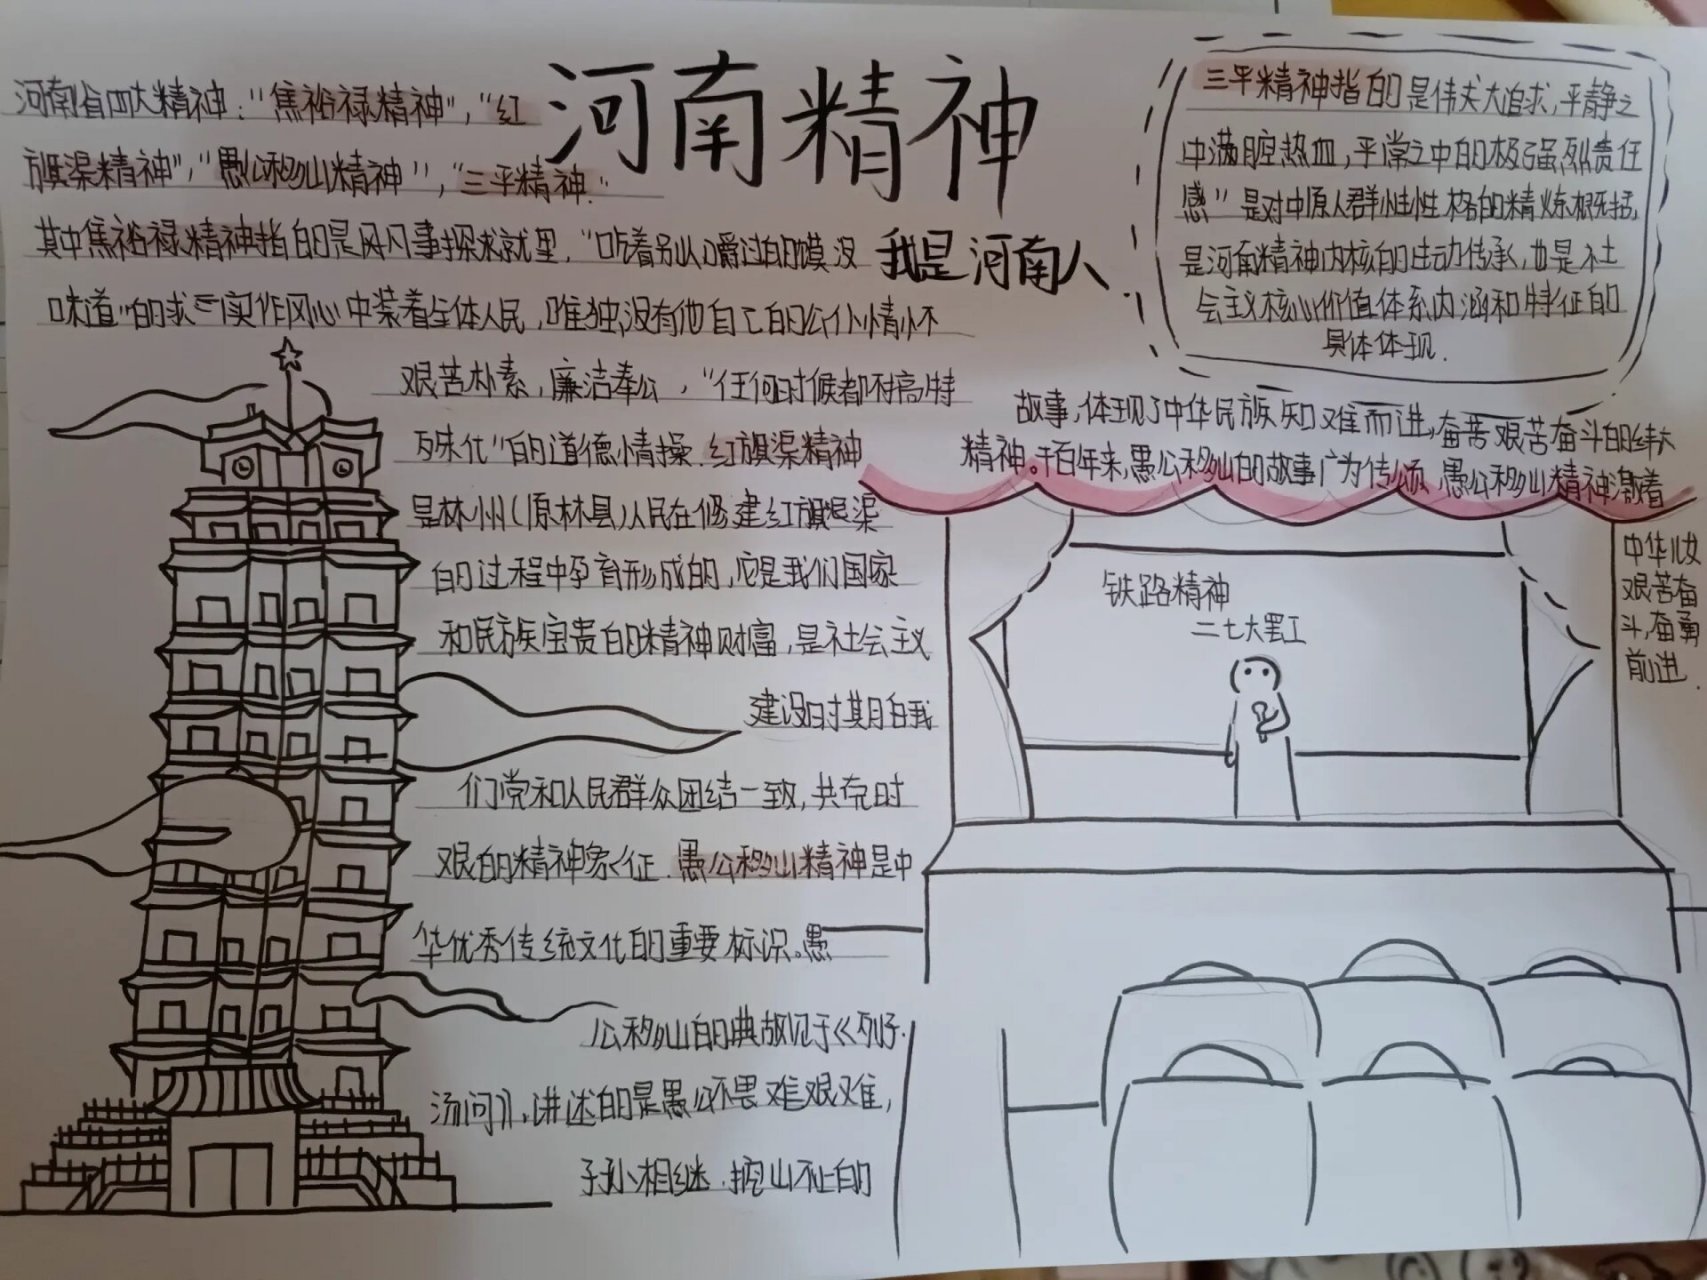 河南精神
我是河南人
河南省四大精神："焦裕禄精神"，"红
旗渠精神"，"愚公移山精神"，"三平精神"
其中焦裕禄精神指的是凡事探求就里，"吃着别人嚼过的馍没
味道"的求实作风心中装着全体人民，唯独没有他自己的公仆情怀
艰苦朴素，廉洁奉公，"任何时候都不搞特
殊化"的道德情操．红旗渠精神
是林州（原林县）人民在修建红旗渠
的过程中孕育形成的，它是我们国家
和民族宝贵的精神财富，是社会主义
建设时期自我
们党和人民群众团结一致，共克时
艰的精神象征．愚公移山精神是中
华优秀传统文化的重要标识。愚
公移山的典故见于《列子·
汤问》，讲述的是愚公不畏难艰难，
子孙相继．挖山不止的
故事，体现了中华民族知难而进，奋苦艰苦奋斗的伟大
精神。千百年来，愚公移山的故事广为传颂，愚公移山精神激着
中华儿女
艰苦奋
斗，奋勇
前进．
三平精神指的是伟大大追求，平静之
中满腔热血，平常之中的极强烈责任
感"是对中原人群性性格的精炼概括，
是河南精神内核的生动传承，也是社
会主义核心价值体系内涵和特征的
具体体现．
铁路精神
二七大罢工